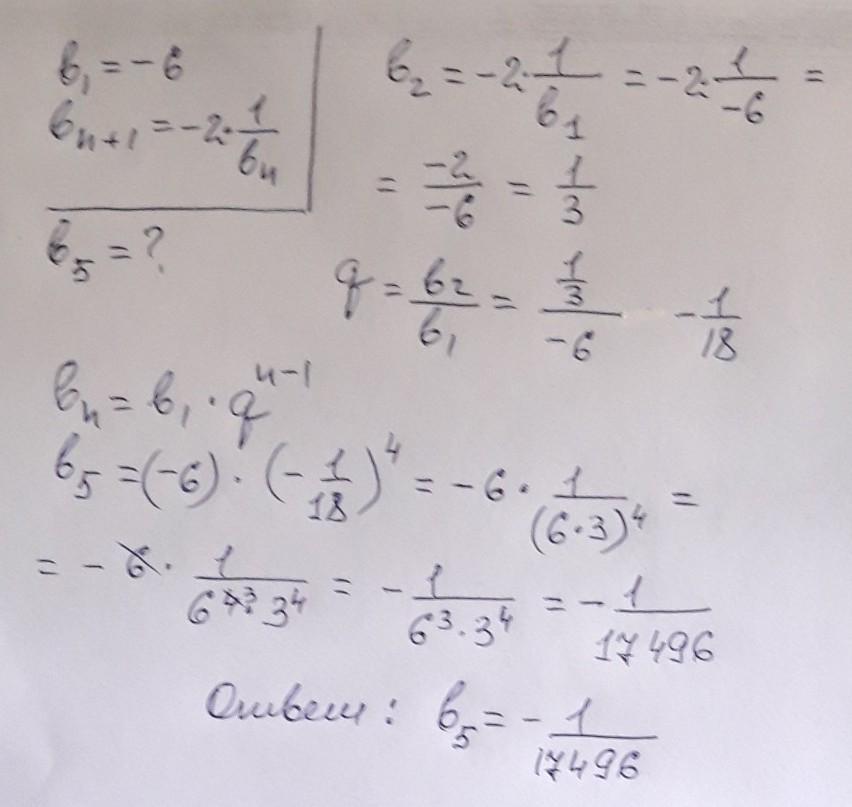 b₁ = -6
bₙ₊₁ = -2·1/bₙ
b₅ = ?
b₂ = -2·1/b₁ = -2·1/-6 =
= -2/-6 = 1/3
q = b₂/b₁ = (1/3)/-6 -1/18
bₙ = b₁ · qⁿ⁻¹
b₅ = (-6) · (-1/18)⁴ = -6 · 1/(6·3)⁴ =
= -6 · 1/(6⁴³·3⁴) = -1/(6³·3⁴) = -1/17496
Ответ: b₅ = -1/17496